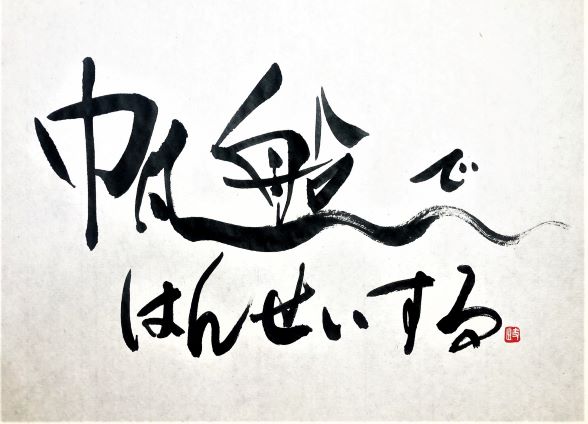 帆船で
はんせいする